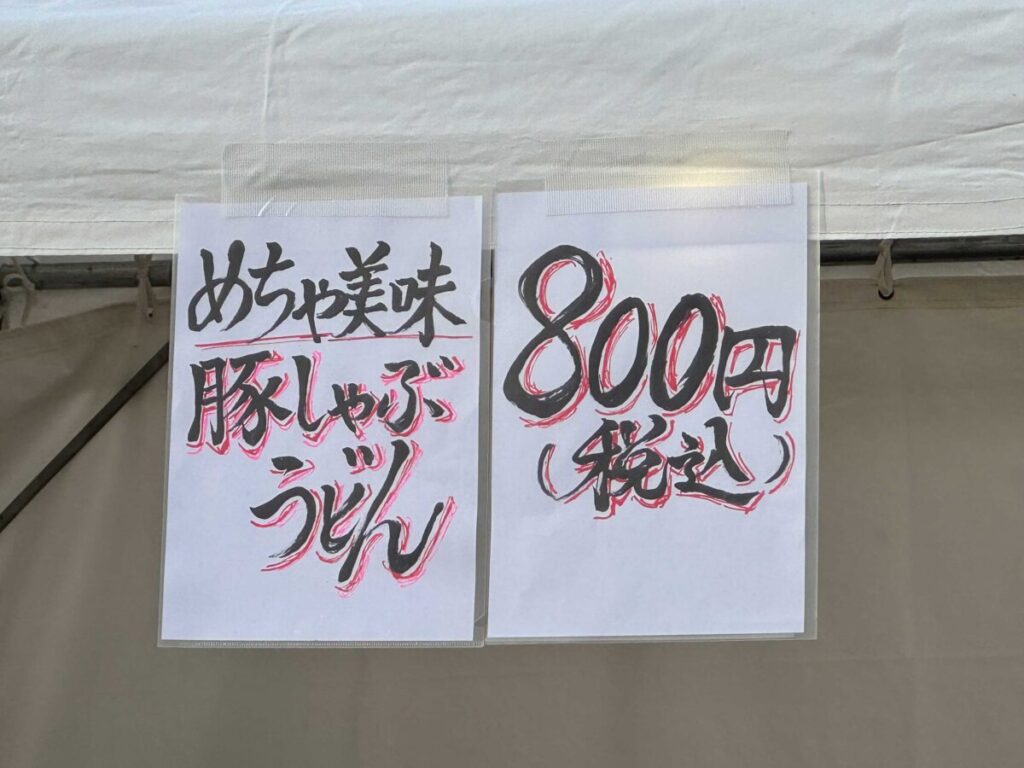 めちゃ美味
豚しゃぶ
うどん
800円
(税込)